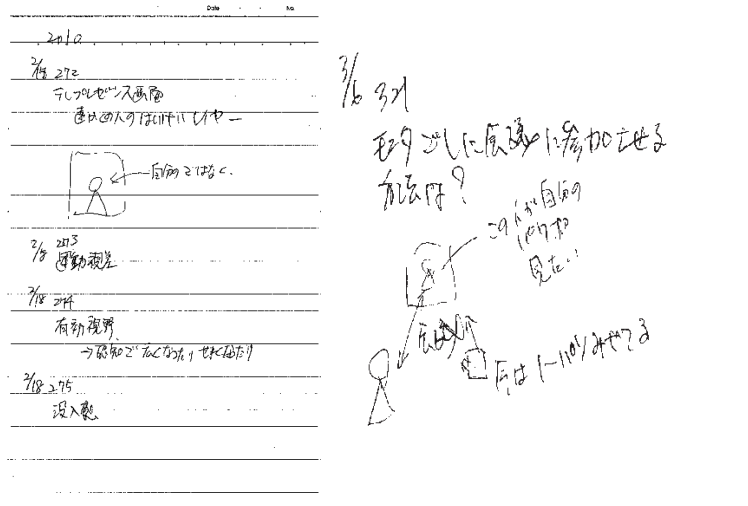 Date No.
2010
2/18 272
テレプレゼンス画面
遠かくの人のはいけいレイヤー
自分のではなく、
2/18 273
運動視差
2/18 274
有効視野
→認知で広くなったりせまくなったり
2/18 275
没入感
3/6 321
モニタごしに会議に参加させる
方法は?
この人が自分の
見たい
会議